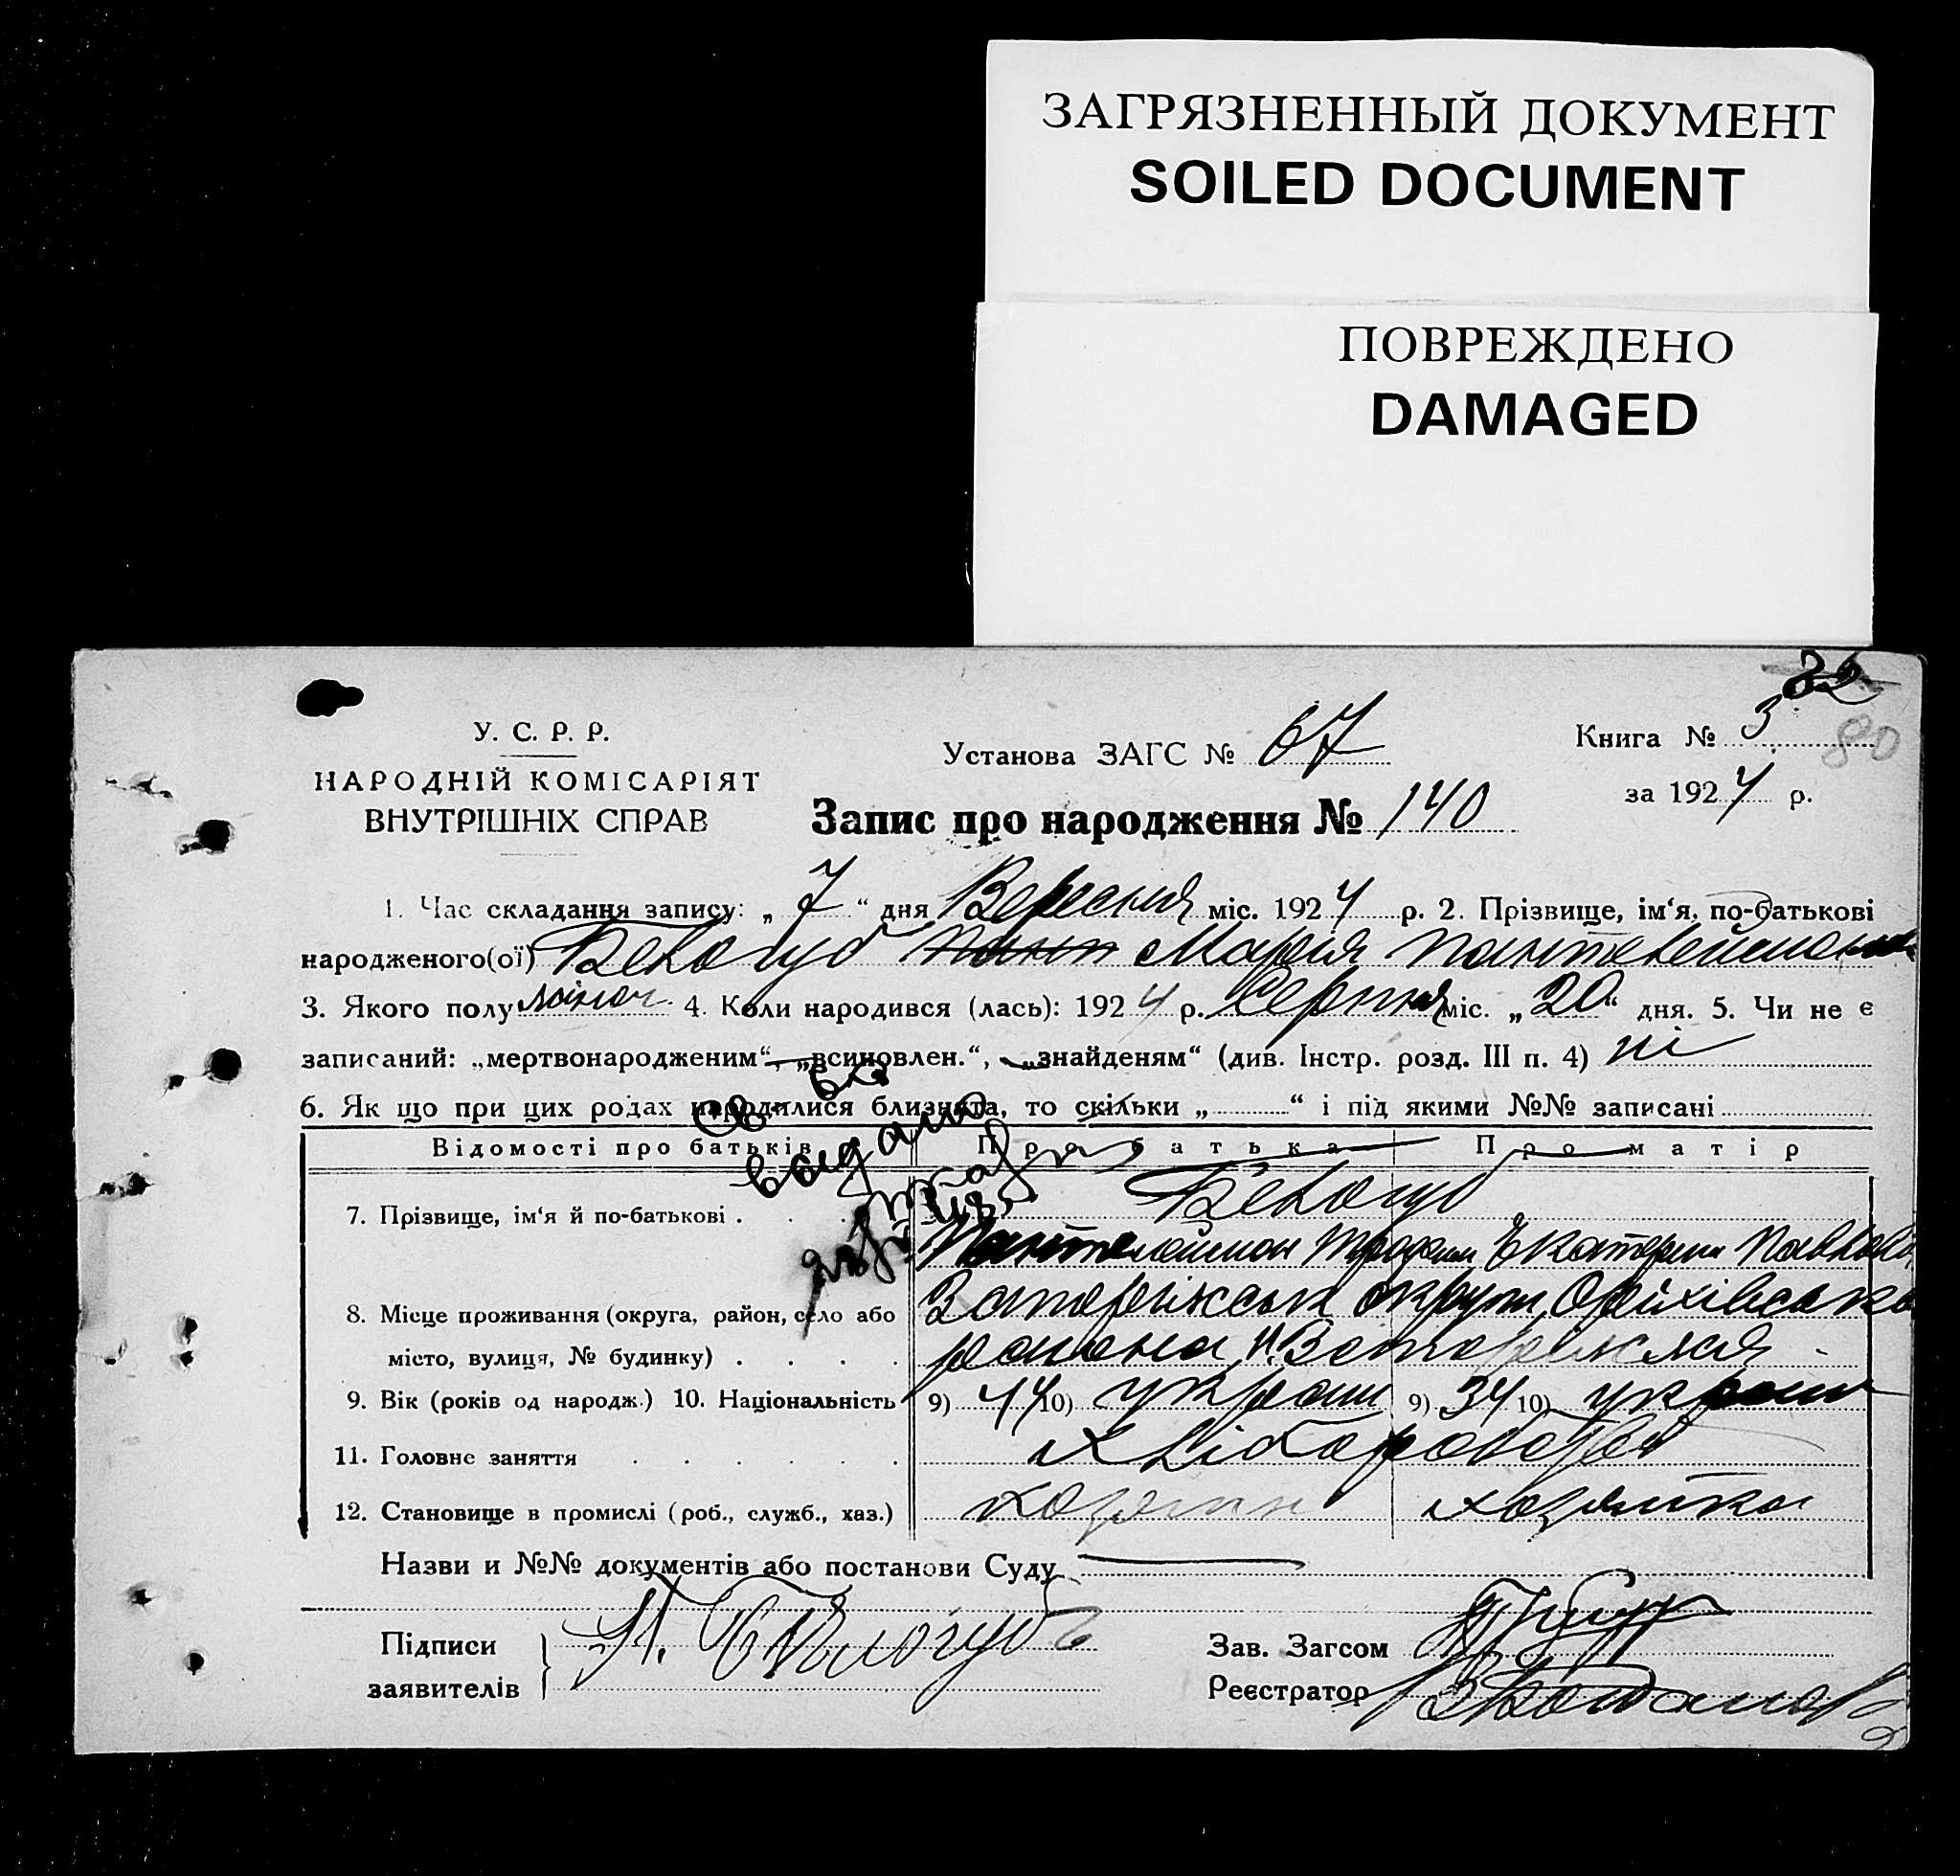 ЗАГРЯЗНЕННЫЙ ДОКУМЕНТ
SOILED DOCUMENT
ПОВРЕЖДЕНО
DAMAGED
32
80
У. С. Р. Р.
НАРОДНІЙ КОМІСАРІЯТ
ВНУТРІШНІХ СПРАВ
Установа ЗАГС № 67
Книга № 3
за 1924 р.
Запис про народження № 140
1. Час складання запису: „ 7 “ дня Вересня міс. 1924 р. 2. Прізвище, ім‘я, по-батькові
народженого(ої) Белогуб Мария
3. Якого полу жіноч 4. Коли народився (лась): 1924 р. Серпня міс. „20“ дня. 5. Чи не є
записаний: „мертвонародженим“, „всиновлен.“, „знайденям“ (див. Інстр. розд. III п. 4) ні
6. Як що при цих родах народилися близнята, то скільки „ “ і під якими №№ записані
Відомості про батьків Про батька Про матір
7. Прізвище, ім‘я й по-батькові . Белогуб
Екатерин
8. Місце проживання (округа, район, село або
місто, вулиця, № будинку) . . . . района
9. Вік (років од народж.) 10. Національність 9) 44 10) україн 9) 34 10) україн
11. Головне заняття . . . . . . Хліборобство
12. Становище в промислі (роб., служб., хаз.) хозяин хозяйка
Назви и №№ документів або постанови Суду
Підписи
заявителів
П. Білогуб
Зав. Загсом
Реєстратор
выдано